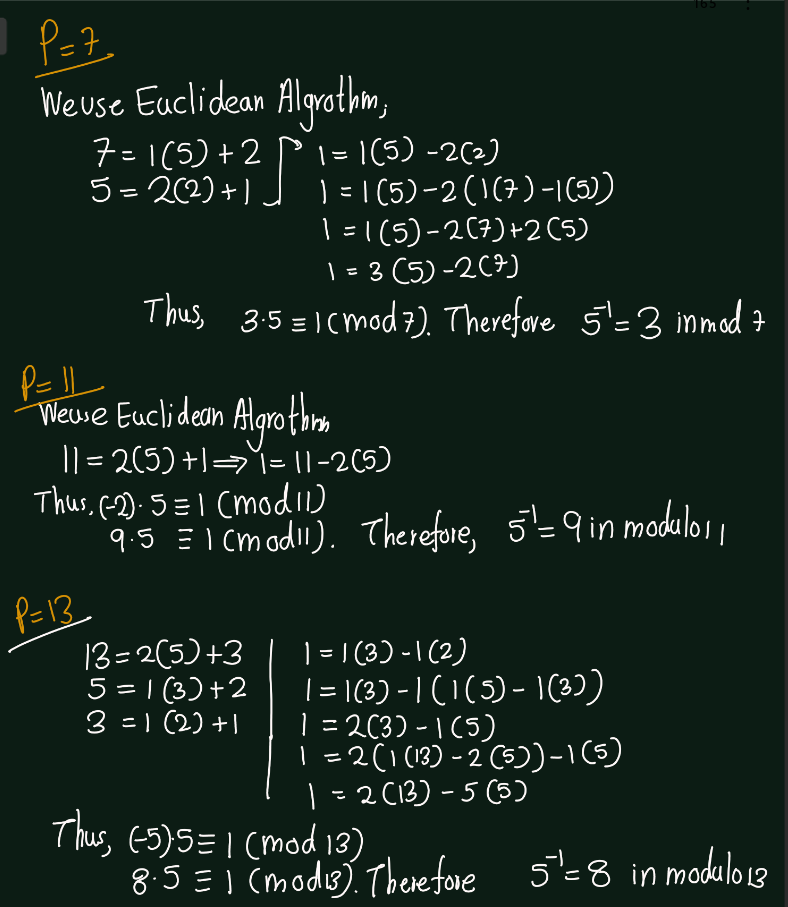 165
P=7
We use Euclidean Algrothm;
7 = 1(5) + 2
5 = 2(2) + 1
1 = 1(5) - 2(2)
1 = 1(5) - 2(1(7) - 1(5))
1 = 1(5) - 2(7) + 2(5)
1 = 3(5) - 2(7)
Thus, 3·5 ≡ 1 (mod 7). Therefore 5⁻¹ = 3 in mod 7
P=11
We use Euclidean Algrothm
11 = 2(5) + 1 ⟹ 1 = 11 - 2(5)
Thus, (-2)·5 ≡ 1 (mod 11)
9·5 ≡ 1 (mod 11). Therefore, 5⁻¹ = 9 in modulo 11
P=13
13 = 2(5) + 3
5 = 1(3) + 2
3 = 1(2) + 1
1 = 1(3) - 1(2)
1 = 1(3) - 1(1(5) - 1(3))
1 = 2(3) - 1(5)
1 = 2(1(13) - 2(5)) - 1(5)
1 = 2(13) - 5(5)
Thus, (-5)·5 ≡ 1 (mod 13)
8·5 ≡ 1 (mod 13). Therefore 5⁻¹ = 8 in modulo 13